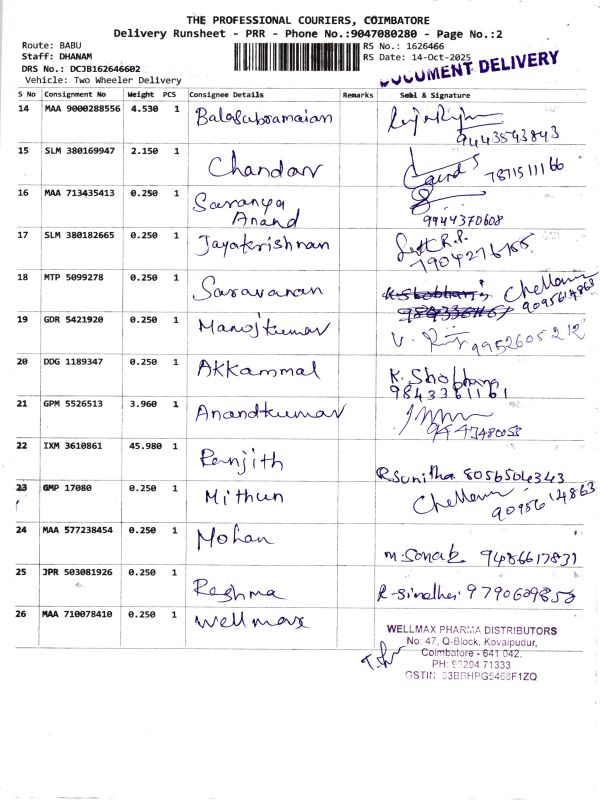 THE PROFESSIONAL COURIERS, COIMBATORE
Delivery Runsheet - PRR - Phone No.:9047080280 - Page No.:2
Route: BABU
RS No.: 1626466
Staff: DHANAM
RS Date: 14-Oct-2025
DRS No.: DCJB162646602
DOCUMENT DELIVERY
Vehicle: Two Wheeler Delivery
S No Consignment No Weight PCS Consignee Details Remarks Seal & Signature
14 MAA 9000288556 4.530 1 Balasubramaian
9443543843
15 SLM 380169947 2.150 1 Chandar
7871511166
16 MAA 713435413 0.250 1 Saranya
Anand
9944370608
17 SLM 380182665 0.250 1 Jayakrishnan
18 MTP 5099278 0.250 1 Saravanan K. Shobhana Chellam
9095614863
19 GDR 5421920 0.250 1 Manojkumar
9952605212
20 DDG 1189347 0.250 1 Akkammal K. Shobhana
9843361161
21 GPM 5526513 3.960 1 Anandkumar
22 IXM 3610861 45.980 1 Ranjith
R Sunitha 8056504343
23 GMP 17080 0.250 1 Mithun Chellam
9095614863
24 MAA 577238454 0.250 1 Mohan
9486617831
25 JPR 503081926 0.250 1 Reshma
26 MAA 710078410 0.250 1 Wellmax
WELLMAX PHARMA DISTRIBUTORS
No: 47, Q-Block, Kovaipudur,
Coimbatore - 641 042.
PH: 93294 71333
GSTIN: 33BBHPG5468F1ZQ